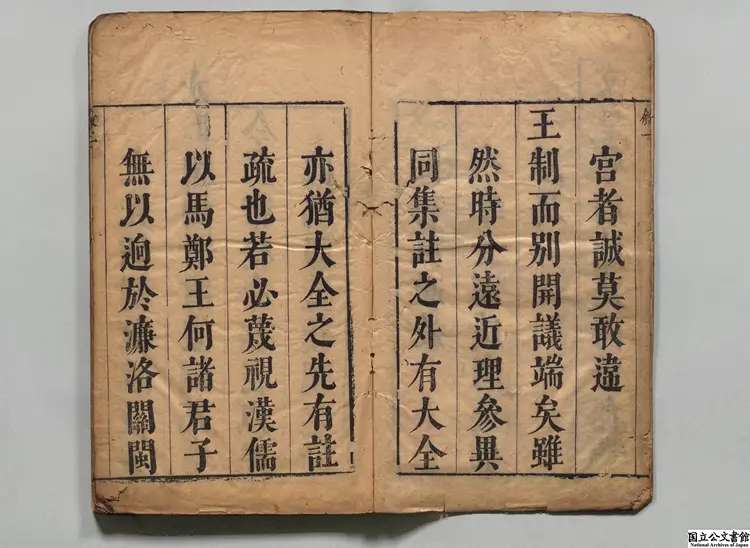 宮者誠莫敢違
王制而别開議端矣雖
然時分遠近理參異
同集註之外有大全
亦猶大全之先有註
疏也若必蔑視漢儒
以馬鄭王何諸君子
無以逈於濂洛關閩
国立公文書館
National Archives of Japan